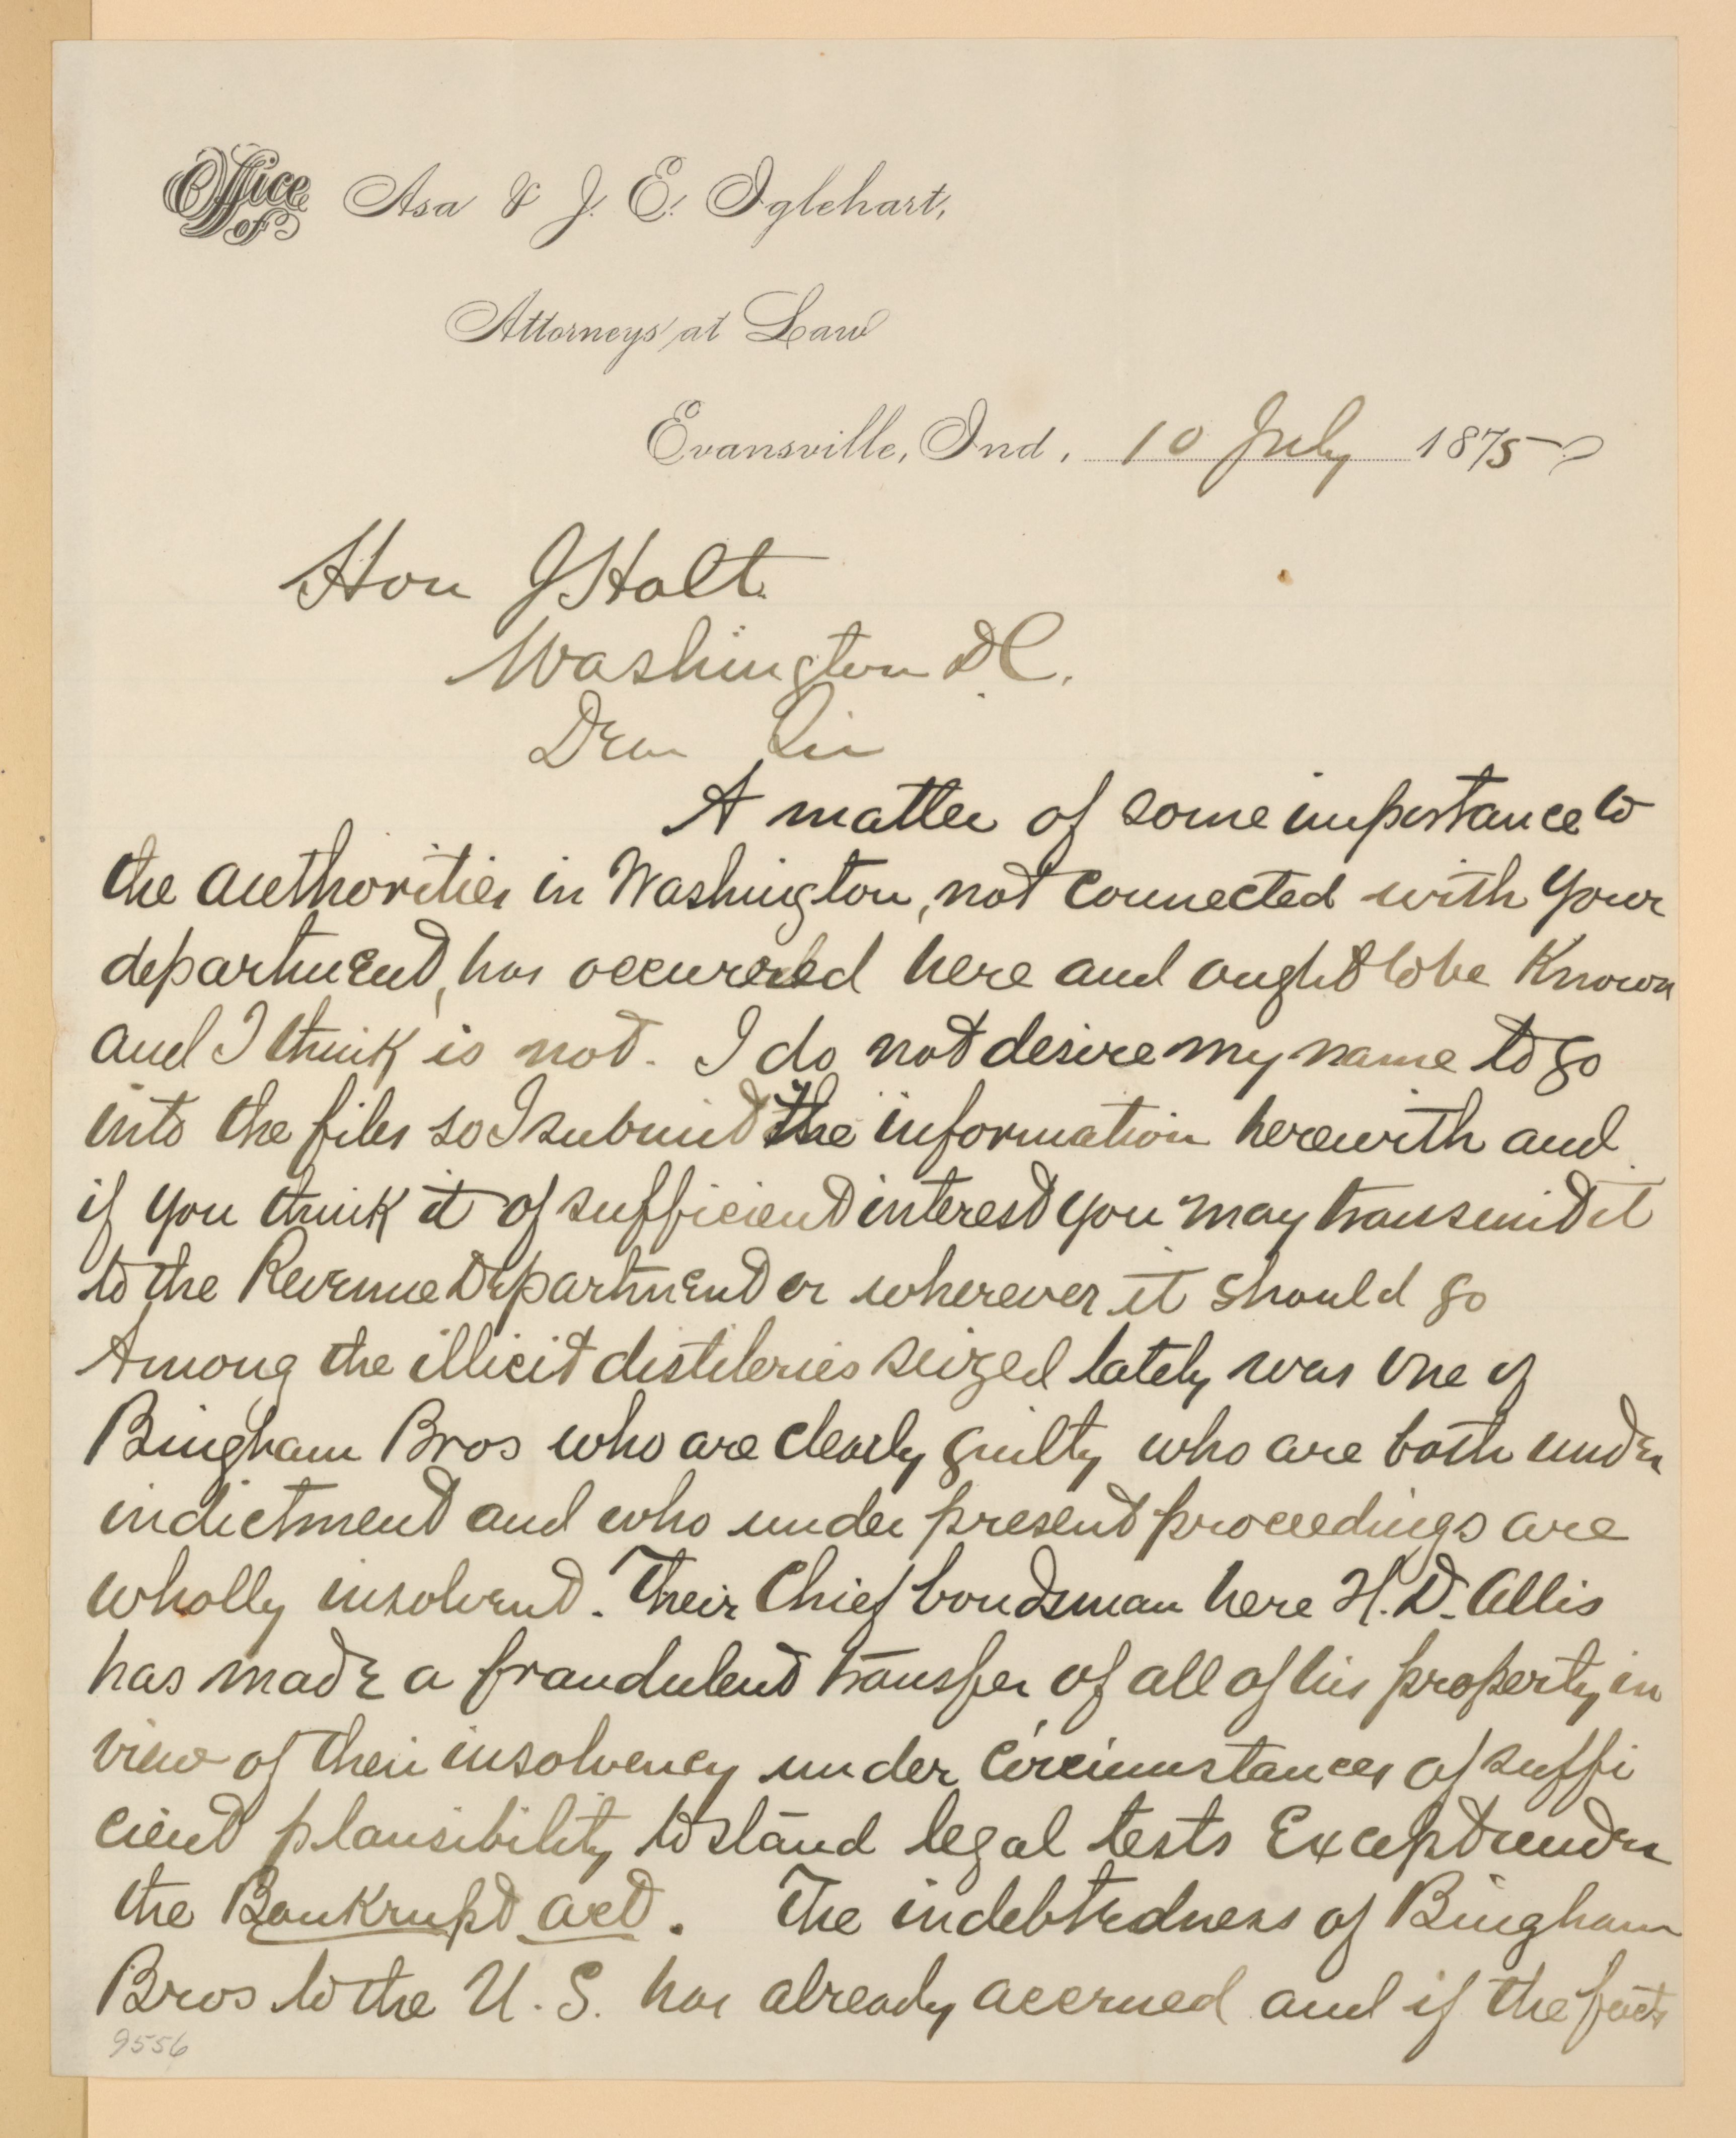 Office of Asa & J. E. Iglehart,
Attorneys at Law
Evansville, Ind., 10 July 1875
Hon J Holt
Washington DC.
Dear Sir
A matter of some importance to
the authorities in Washington, not connected with your
department, has occurered here and ought to be known
and I think is not. I do not desire my name to go
into the files so I submit the information herewith and
if you think it of sufficient interest you may transmit it
to the Revenue Department or wherever it should go
Among the illicit distileries seized lately was one of
Bingham Bros who are clearly guilty who are both under
indictment and who under present proceedings are
wholly insolvent. Their Chief bondsman here H. D. Allis
has made a fraudulent transfer of all of his property in
view of their insolvency under circumstances of suffi
cient plausibility to stand legal tests Except under
the Bankrupt act. The indebtedness of Bingham
Bros to the U. S. has already accrued and if the facts
9556